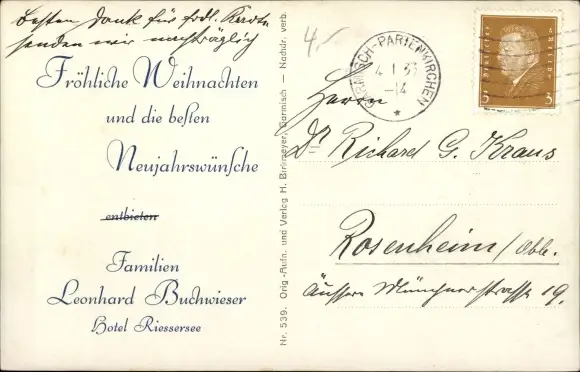 besten Dank für frdl. Karte
senden wir nachträglich
Fröhliche Weihnachten
und die besten
Neujahrswünsche
entbieten
Familien
Leonhard Buchwieser
Hotel Riessersee
Nr. 539. Orig.-Aufn. und Verlag H. Birkmeyer, Garmisch — Nachdr. verb.
4.-
GARMISCH-PARTENKIRCHEN
4.1.33
-14
Deutsches Reich
3 3
Herrn
Dr Richard G. Kraus
Rosenheim/Obb.
Äussere Münchnerstrasse 19.